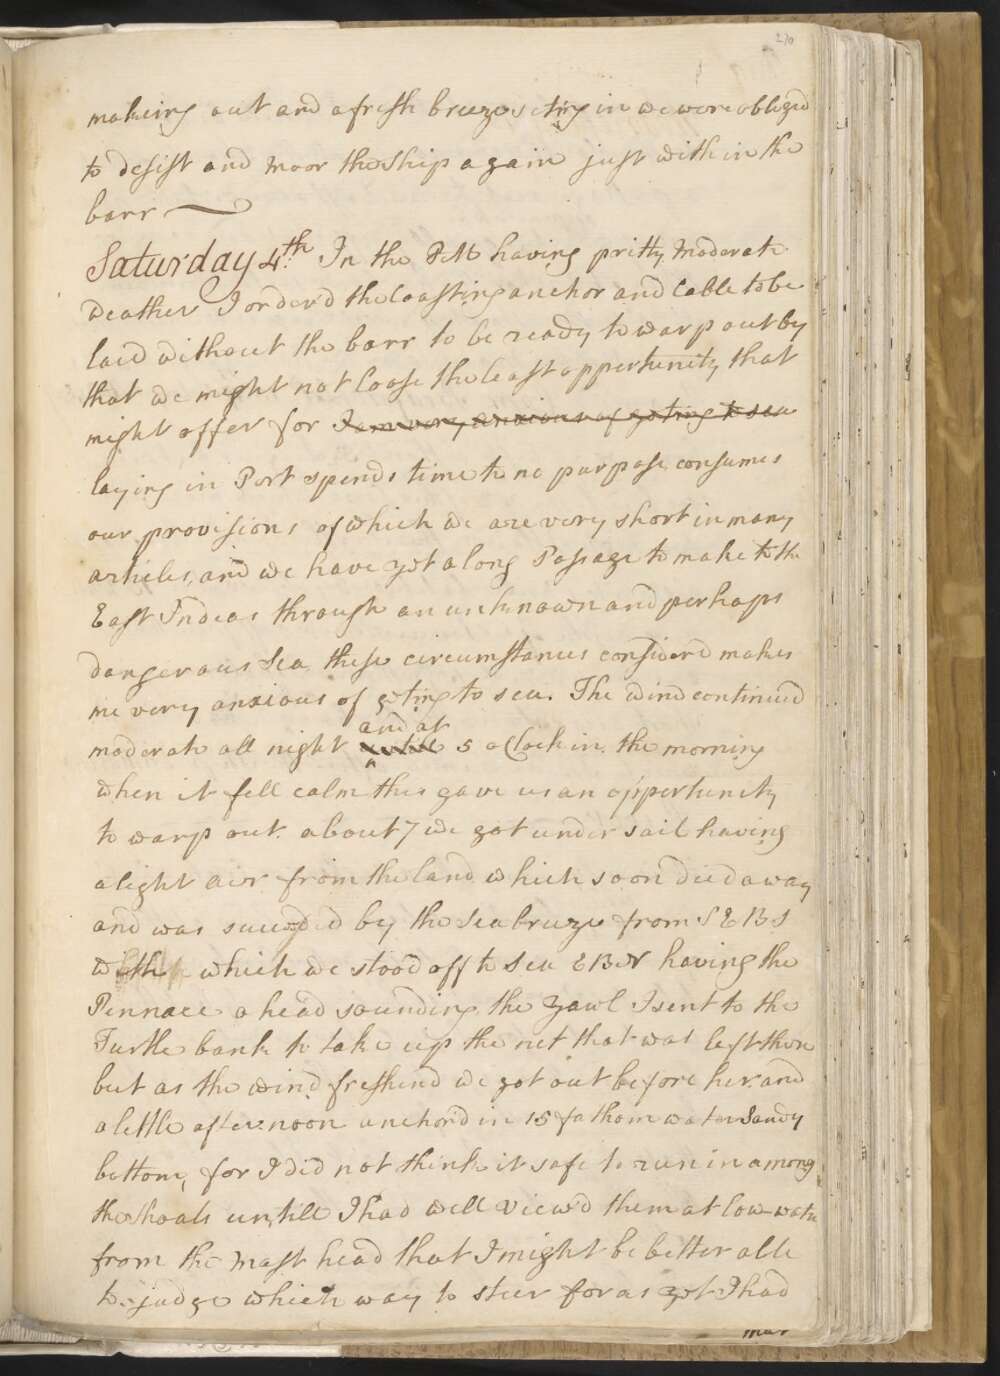 270
makeing out and a fresh breeze seting in we were obliged
to desist and moor the Ship again just within the
barr
Saturday 4th In the PM having pritty moderate
weather I order'd the Coasting anchor and Cable to be
laid without the barr to be ready to warp out by
that we might not loose the least oppertunity that
might offer for I am very anxious of geting to sea
laying in Port spends time to no purpose, consumes
our provisions of which we are very short in many
articles, and we have yet a long Passage to make to the
East Indias through an unknown and perhaps
dangerous Sea, these circumstances consider'd makes
me very anxious of geting to sea. The wind continued
and at
moderate all night untill 5 oClock in the morning
when it fell calm this gave us an oppertunity
to warp out. about 7 we got under sail having
a light air from the land which soon died away
and was succeeded by the Sea breeze from SEBS
with which we stood off to Sea EBN having the
Pinnace ahead sounding, the yawl I sent to the
Turtle bank to take up the net that was left there
but as the wind freshend we got out before her and
a little after noon anchor'd in 15 fathom water Sandy
bottom, for I did not think it safe to run in among
the shoals untill I had well view'd them at low-water
from the Mast head that I might be better able
to judge which way to steer for as yet I had